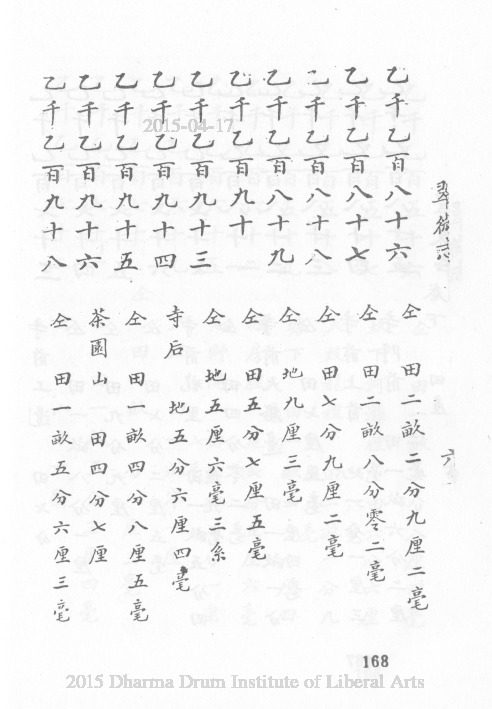 翠微志 六
乙千乙百八十六 仝 田二畝二分九厘二毫
乙千乙百八十七 仝 田二畝八分零二毫
乙千乙百八十八 仝 田七分九厘二毫
乙千乙百八十九 仝 地九厘三毫
乙千乙百九十 仝 田五分七厘五毫
乙千乙百九十三 仝 地五厘六毫三糸
乙千乙百九十四 寺后 地五分六厘四毫
乙千乙百九十五 仝 田一畝四分八厘五毫
乙千乙百九十六 茶園山 田四分七厘
乙千乙百九十八 仝 田一畝五分六厘三毫
2015-04-17
168
2015 Dharma Drum Institute of Liberal Arts